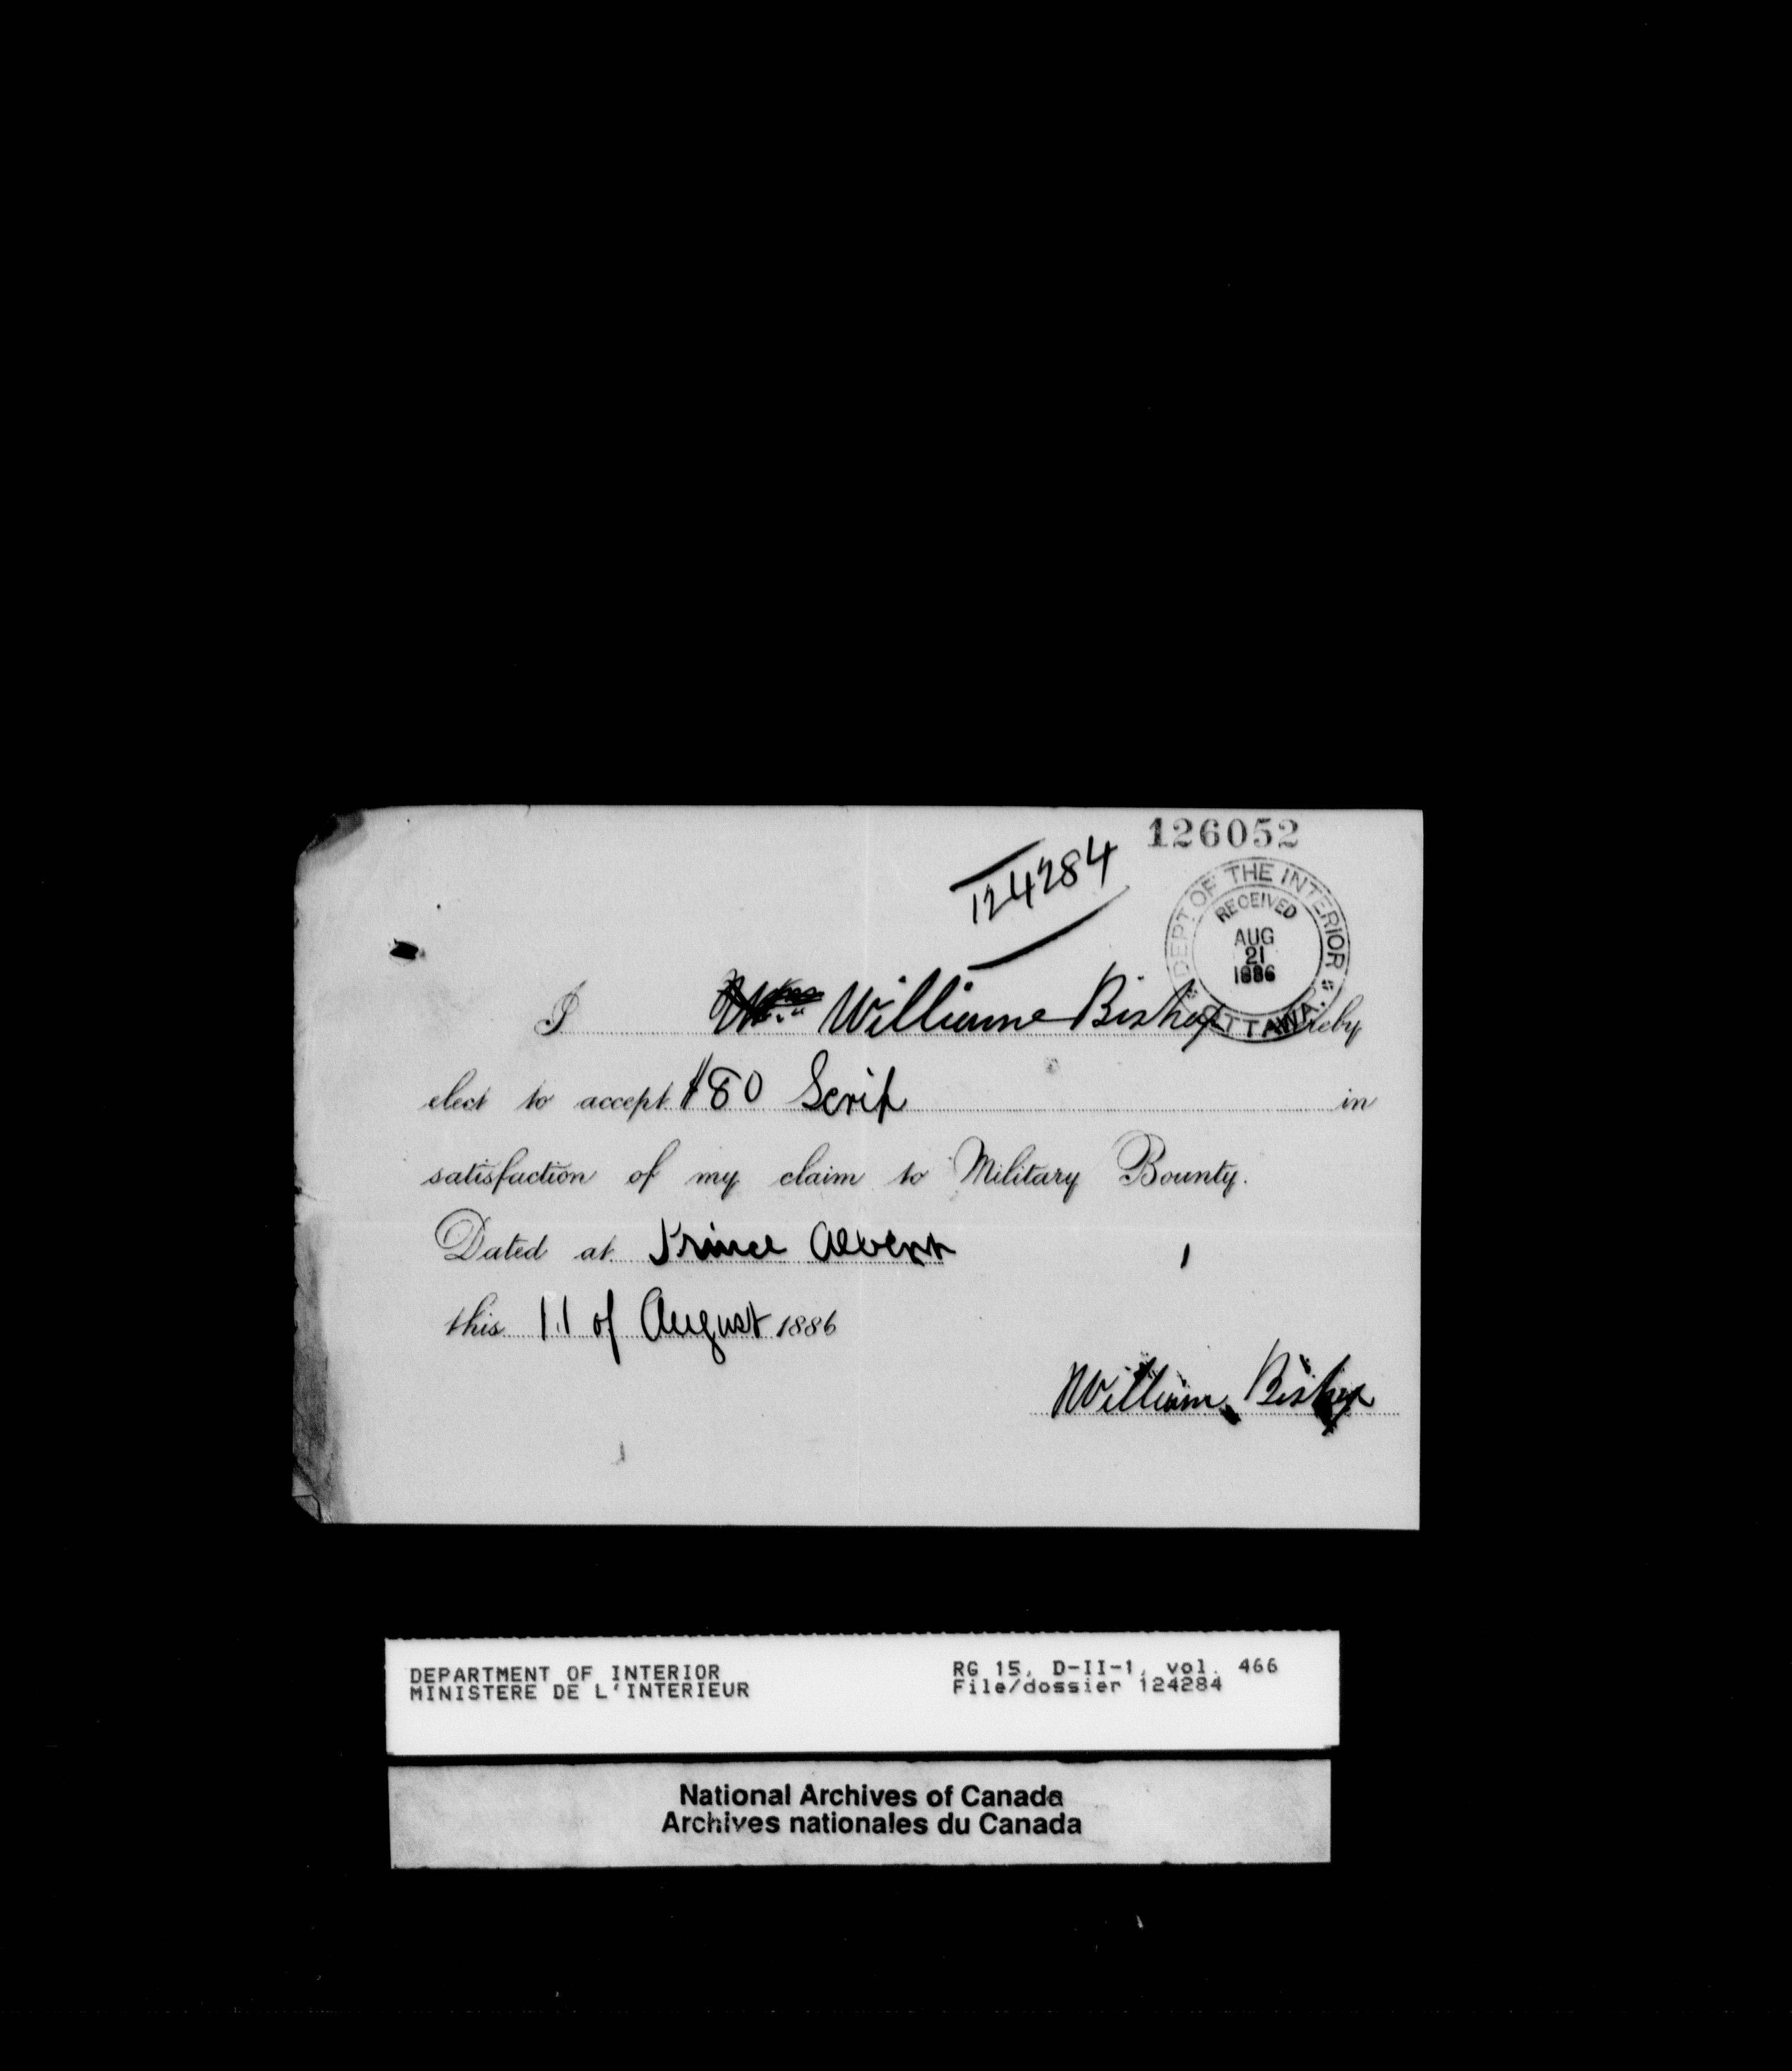 126052
124284
DEPT OF THE INTERIOR
RECEIVED
AUG
21
1886
OTTAWA.
I Willianne Bishop hereby
elect to accept $80 Scrip in
satisfaction of my claim to Military Bounty.
Dated at Prince Albert
this 11 of August 1886
William Bishop
DEPARTMENT OF INTERIOR
MINISTERE DE L'INTERIEUR
RG 15, D-II-1, vol. 466
File/dossier 124284
National Archives of Canada
Archives nationales du Canada